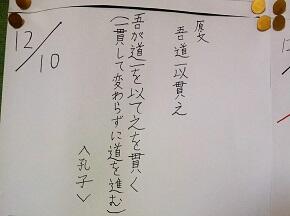 12/10
原文
吾道一以貫之
吾が道一を以て之を貫く
(一貫して変わらずに道を進む)
<孔子>